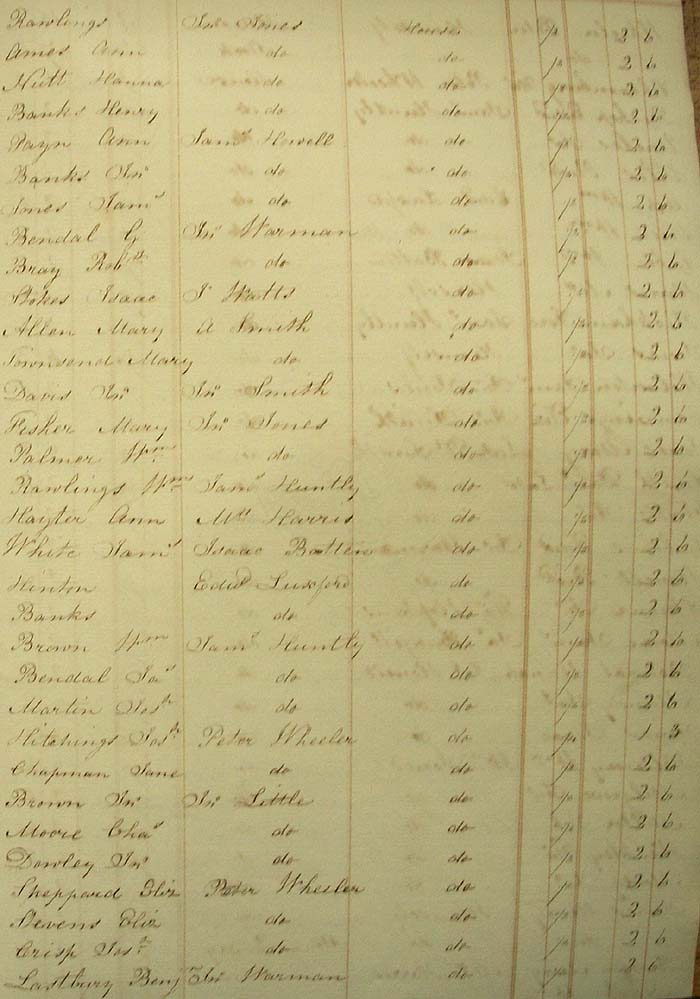 Rawlings Jnº Jones House 2 6
Ames Ann do do 2 6
Nutt Hanna do do 2 6
Banks Henry do do 2 6
Payn Ann Samˡ Howell do 2 6
Banks Jnº do do 2 6
Jones Samˡ do do 2 6
Bendal G Jnº Warman do 2 6
Bray Robᵗ do do 2 6
Stokes Isaac J Watts do 2 6
Allen Mary A Smith do 2 6
Townsend Mary do do 2 6
Davis Jnº Jnº Smith do 2 6
Fisher Mary Jnº Jones do 2 6
Palmer Wᵐ do do 2 6
Rawlings Wᵐ Samˡ Huntly do 2 6
Hayter Ann Mʳˢ Harris do 2 6
White Samˡ Isaac Batten do 2 6
Hinton Edwᵈ Luxford do 2 6
Banks do do 2 6
Brown Wᵐ Samˡ Huntly do 2 6
Bendal Jaˢ do do 2 6
Martin Josʰ do do 2 6
Hitchings Josʰ Peter Wheeler do 1 3
Chapman Jane do do 2 6
Brown Jnº Jnº Little do 2 6
Moore Chaˢ do do 2 6
Dowley Jnº do do 2 6
Sheppard Eliz Peter Wheeler do 2 6
Stevens Eliz do do 2 6
Crisp Josʰ do do 2 6
Lastbury Benj Jnº Warman do 2 6